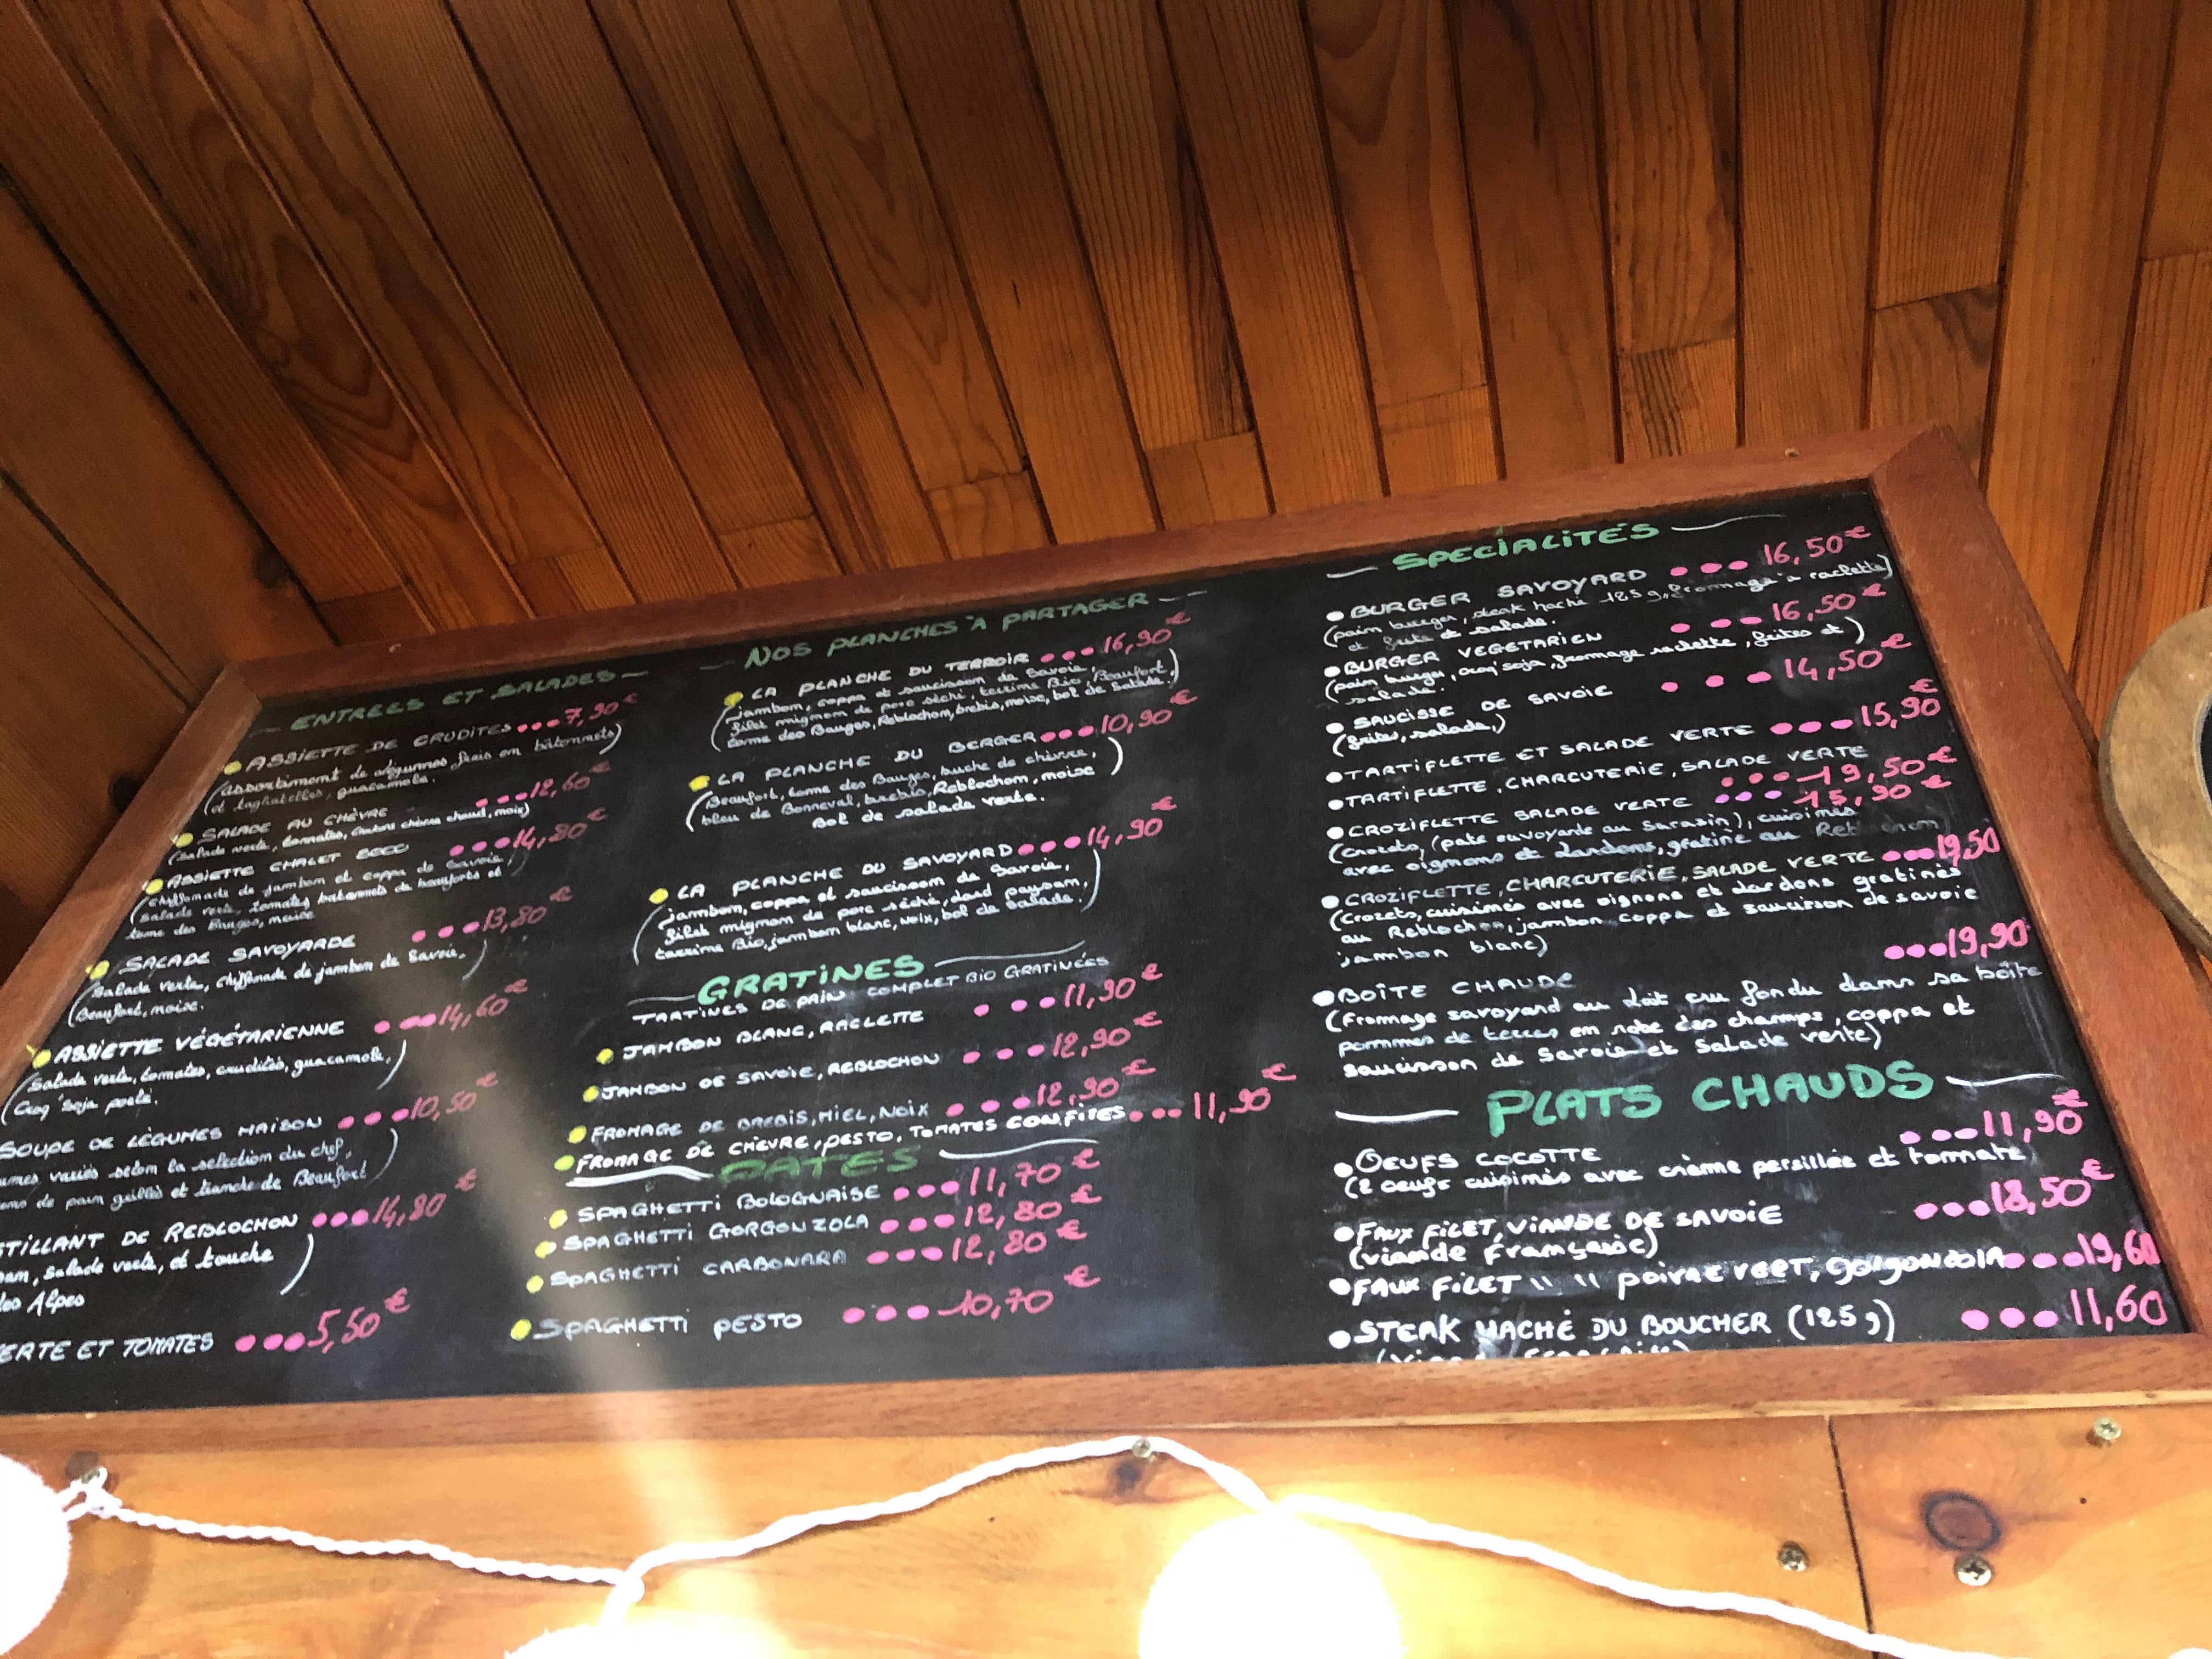 ENTREES ET SALADES
ASSIETTE DE CRUDITES 7,90€
(assortiment de légumes frais en bâtonnets
et tagliatelles, guacamole.)
SALADE AU CHÈVRE 12,60€
(Salade verte, tomates, chèvre chaud, noix)
ASSIETTE CHALET 14,80€
(chiffonade de jambon et coppa de Savoie,
salade verte, tomates, batonnets de beaufort et
tome des Bauges, noix)
SALADE SAVOYARDE 13,80€
(Salade verte, chiffonade de jambon de Savoie,
Beaufort, noix.)
ASSIETTE VÉGÉTARIENNE 14,60€
(Salade verte, tomates, crudités, guacamole,
Croq'Soja poêlé.)
SOUPE DE LÉGUMES MAISON 10,50€
umes variés selon la selection du chef,
de pain grillés et tranche de Beaufort)
TILLANT DE REBLOCHON 14,80€
Salade verte, et touche
les Alpes)
ERTE ET TOMATES 5,50€
NOS PLANCHES À PARTAGER
LA PLANCHE DU TERROIR 16,90€
(jambon, coppa et saucisson de Savoie,
filet mignon de porc séché, terrine Bio, Beaufort,
tome des Bauges, Reblochon, brebis, noix, bol de Salade.)
LA PLANCHE DU BERGER 10,90€
(Beaufort, tome des Bauges, buche de chèvre,
bleu de Bonneval, brebis, Reblochon, noix)
Bol de salade verte.
LA PLANCHE DU SAVOYARD 14,90€
(jambon, coppa et saucisson de Savoie,
filet mignon de porc séché, lard paysan,
terrine Bio, jambon blanc, noix, bol de Salade.)
GRATINES
TARTINES DE PAIN COMPLET BIO GRATINÉES
JAMBON BLANC, RACLETTE 11,90€
JAMBON DE SAVOIE, REBLOCHON 12,90€
FROMAGE DE BREBIS, MIEL, NOIX 12,90€
FROMAGE DE CHÈVRE, PESTO, TOMATES CONFITES 11,90€
PATES
SPAGHETTI BOLOGNAISE 11,70€
SPAGHETTI GORGONZOLA 12,80€
SPAGHETTI CARBONARA 12,80€
SPAGHETTI PESTO 10,70€
SPECIALITÉS
BURGER SAVOYARD 16,50€
(pain burger, steak haché 125g, fromage à raclette)
et frite et salade.
BURGER VEGETARIEN 16,50€
(pain burger, croq'soja, fromage raclette, frites et)
salade.
SAUCISSE DE SAVOIE 14,50€
(frites, salade,)
TARTIFLETTE ET SALADE VERTE 15,90€
TARTIFLETTE, CHARCUTERIE, SALADE VERTE 19,50€
CROZIFLETTE SALADE VERTE 15,90€
(Crozets, (pate savoyarde au Sarasin), cuisinés
avec oignons et lardons, gratiné au Reblochon)
CROZIFLETTE, CHARCUTERIE, SALADE VERTE 19,50
(Crozets, cuisinés avec oignons et lardons gratinés
au Reblochon, jambon coppa et saucisson de savoie
jambon blanc)
BOÎTE CHAUDE 19,90€
(Fromage savoyard au lait cru fondu dans sa boîte
pommes de terres en robe des champs, coppa et
saucisson de Savoie et Salade verte)
PLATS CHAUDS
OEUFS COCOTTE 11,90€
(2 oeufs cuisinés avec crème persillée et tomate)
FAUX FILET, VIANDE DE SAVOIE 18,50€
(viande Française)
FAUX FILET " " poivre vert, gorgonzola 19,60
STEAK HACHÉ DU BOUCHER (125g) 11,60